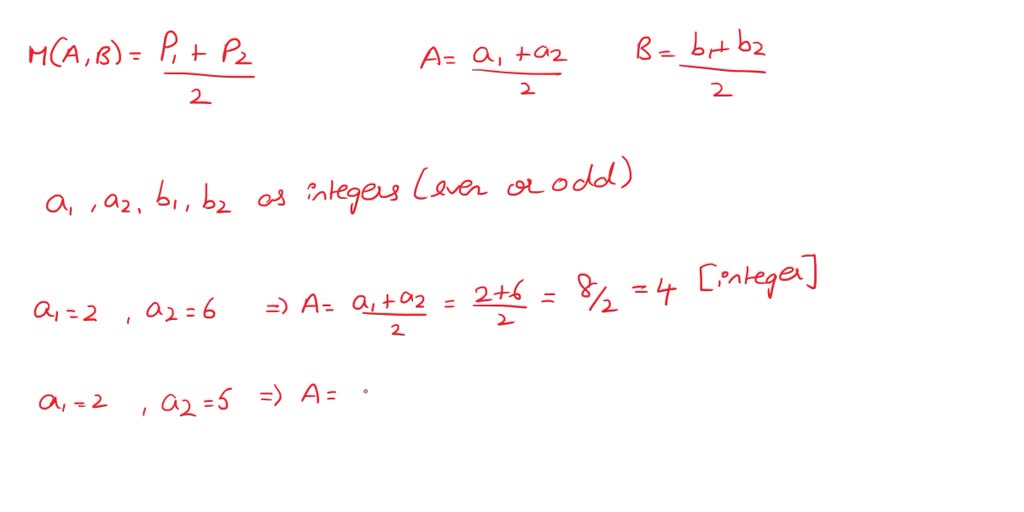 M(A,B) = P₁ + P₂ / 2 A = a₁ + a₂ / 2 B = b₁ + b₂ / 2
a₁, a₂, b₁, b₂ as integers (even or odd)
a₁ = 2 , a₂ = 6 ⇒ A = a₁ + a₂ / 2 = 2+6 / 2 = 8/2 = 4 [integer]
a₁ = 2 , a₂ = 5 ⇒ A =